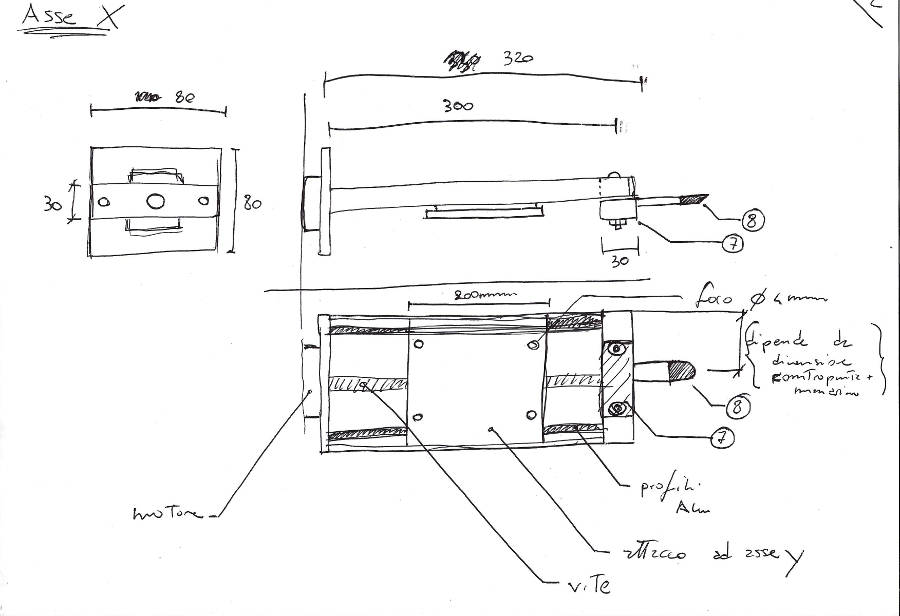 Asse X
320
80
300
30
80
8
7
30
200mm
foro Ø 4 mm
(dipende da
dimensione
contropunta +
mandrino)
8
7
profili
Alu
motore
attacco ad asse Y
vite